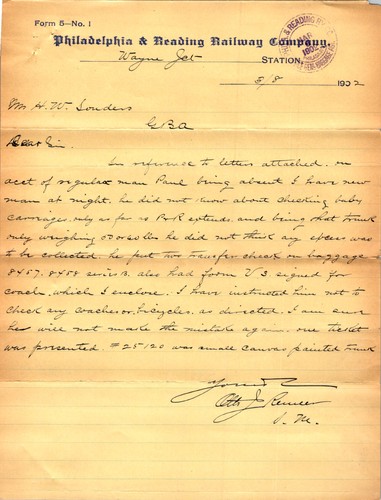 Form 5—No. 1
Philadelphia & Reading Railway Company,
Wayne Jct STATION,
3/8 1902
Mr H. W. Souders
G B A
Dear Sir.
In reference to letters attached. on
acct of regular man Paul being absent I have new
man at night. he did not know about checking baby
carriages. only as far as R.R. extends. and being that trunk
only weighing lbs he did not think any excess was
to be collected. he put two transfer check on baggage
8457. 8458 series B. also had form V 3 signed for
coach. which I enclose. I have instructed him not to
check any coaches or bicycles. as directed. I am sure
he will not make the mistake again. one ticket
was presented. # 25120 was small canvas painted trunk
Yours
Otto J